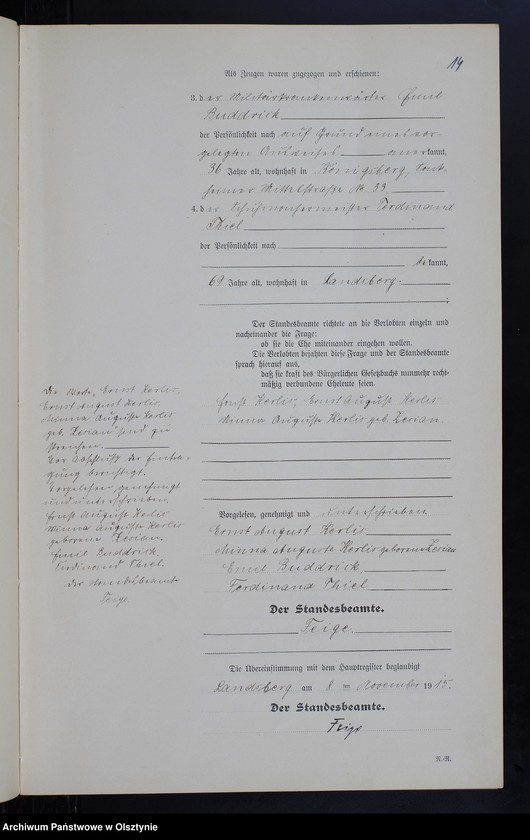 14
Als Zeugen waren zugezogen und erschienen:
3. der Militärkrankenwärter Emil
Buddrick
der Persönlichkeit nach auf Grund eines vor-
gelegten Ausweises anerkannt,
36 Jahre alt, wohnhaft in Königsberg,
Mittelstraße № 33,
4. der Schuhmachermeister Ferdinand
Thiel
der Persönlichkeit nach
bekannt,
69 Jahre alt, wohnhaft in Landsberg.
Der Standesbeamte richtete an die Verlobten einzeln und
nacheinander die Frage:
ob sie die Ehe miteinander eingehen wollen.
Die Verlobten bejahten diese Frage und der Standesbeamte
sprach hierauf aus,
daß sie kraft des Bürgerlichen Gesetzbuchs nunmehr recht-
mäßig verbundene Eheleute seien.
Ernst Kerlis, Ernst August Kerlis
Minna Auguste Kerlis geb. Zerian
Vorgelesen, genehmigt und unterschrieben
Ernst August Kerlis
Minna Auguste Kerlis geborene Zerian
Emil Buddrick
Ferdinand Thiel
Der Standesbeamte.
Feige
Die Übereinstimmung mit dem Hauptregister beglaubigt
Landsberg am 8 ten November 1915.
Der Standesbeamte.
Feige
N.-R.
Die Worte, Ernst Kerlis,
Ernst August Kerlis,
Minna Auguste Kerlis
geb. Zerian sind zu
streichen.
Vor Abschluß der Eintra-
gung berichtigt.
Vorgelesen, genehmigt
und unterschrieben
Ernst August Kerlis
Minna Auguste Kerlis
geborene Zerian.
Emil Buddrick
Ferdinand Thiel
Der Standesbeamte
Feige
Archiwum Państwowe w Olsztynie